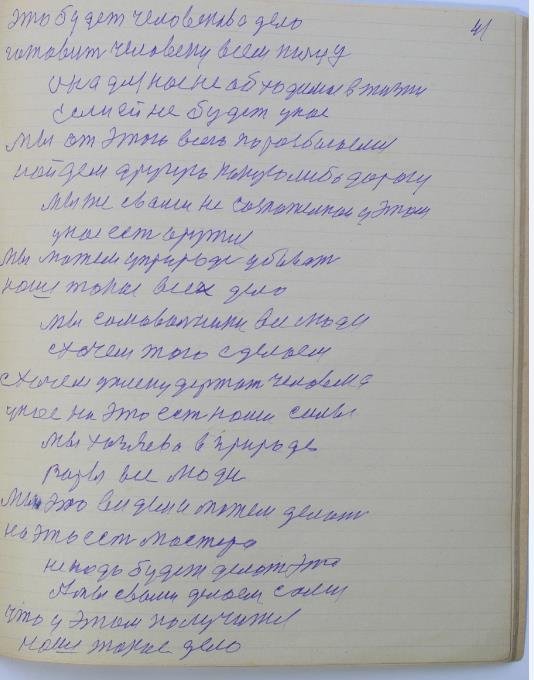 41
это будет человека дело
готовит человеку всем пищу
она для нас необходима в жизни
если ей не будет у нас
мы от этого всего поразболеем
найдем другую какую либо дорогу
мы же с вами не
у нас ест оружие
мы можем у природе убиват
наше такое всех дело
мы самоватники все люди
схочем того сделаем
схочем у плену держат человека
у нас на это ест наши силы
мы хозяева в природе
все люди
мы это видем и можем делат
на это ест мастера
не надо будет делат это
А мы с вами делаем сами
что у этом получили
наше такое дело